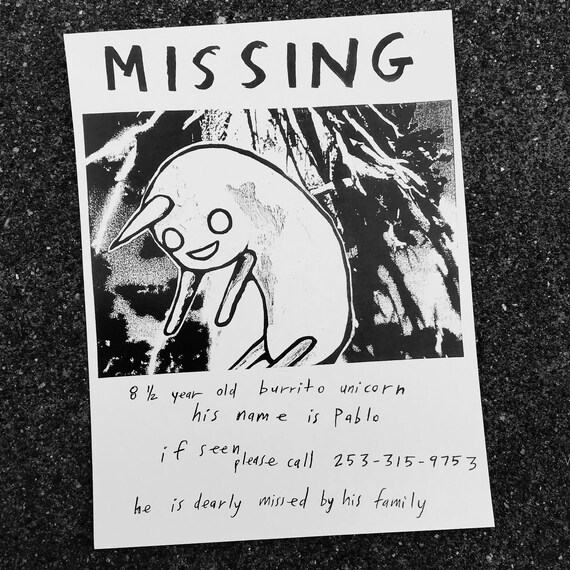 MISSING
8 1/2 year old burrito unicorn
his name is Pablo
if seen please call 253-315-9753
he is dearly missed by his family